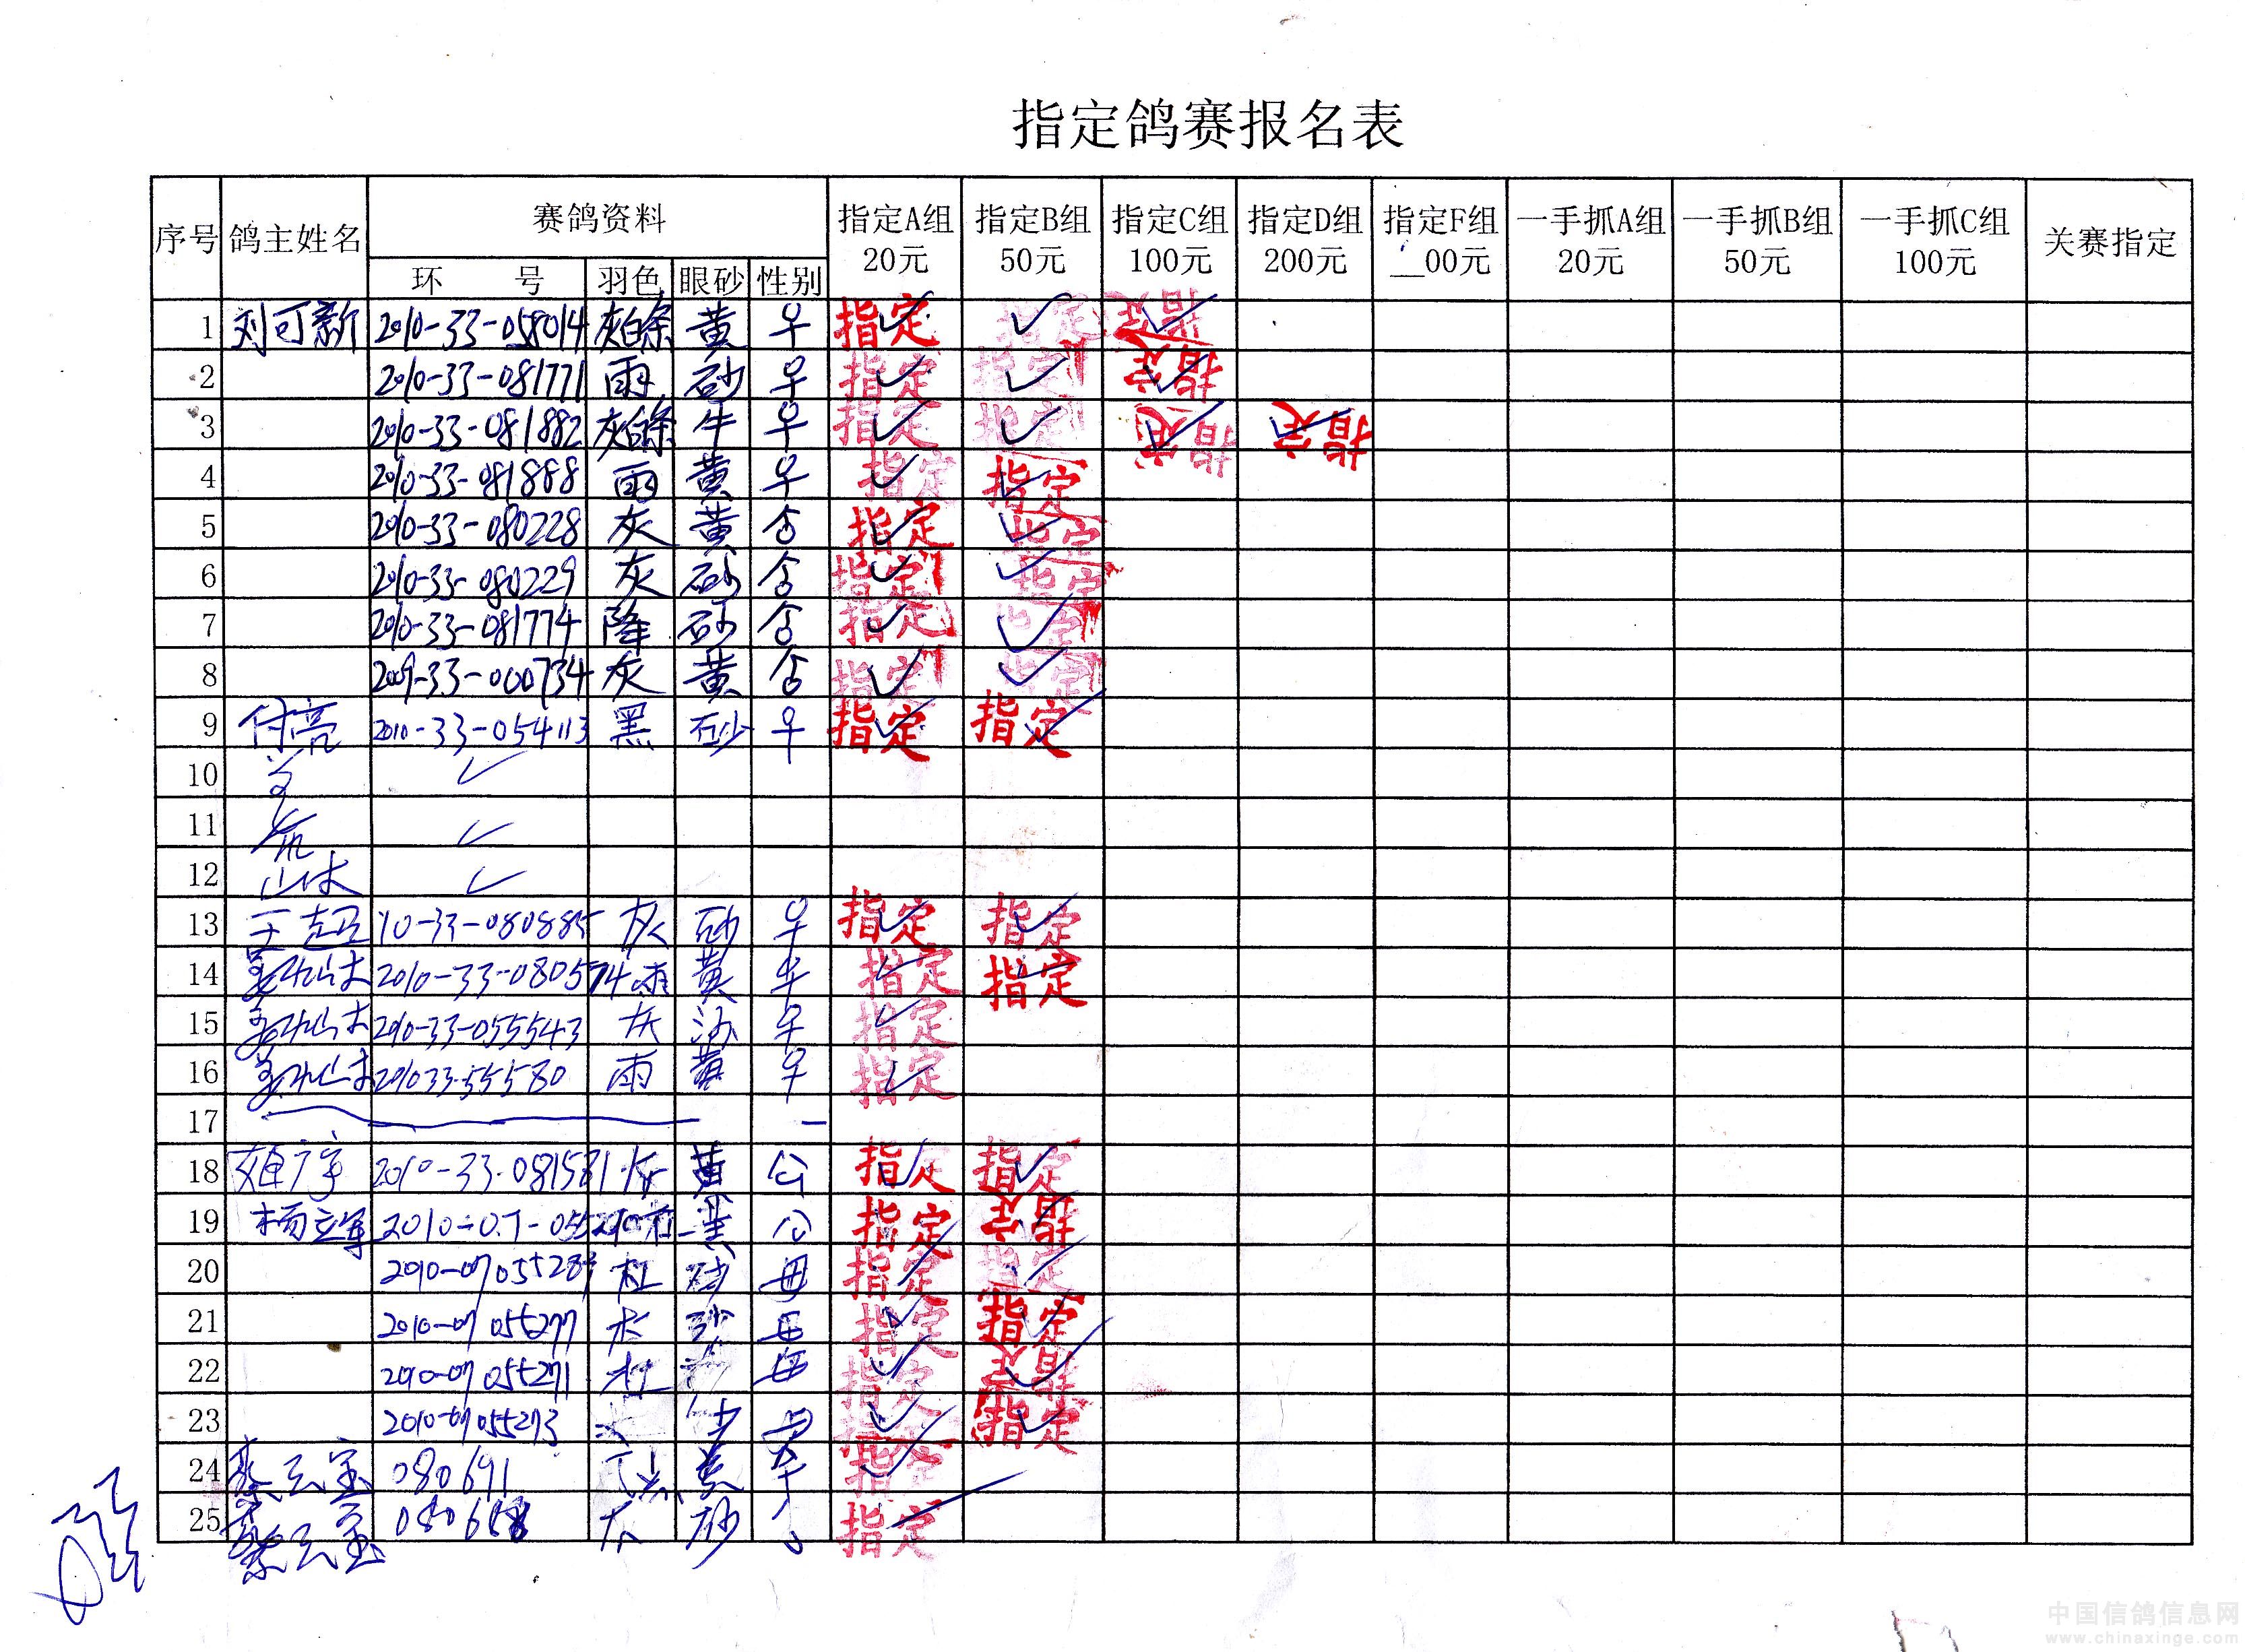 指定鸽赛报名表
序号 鸽主姓名 赛鸽资料 指定A组 20元 指定B组 50元 指定C组 100元 指定D组 200元 指定F组 __00元 一手抓A组 20元 一手抓B组 50元 一手抓C组 100元 关赛指定
环 号 羽色 眼砂 性别
1 刘可新 2010-33-058014 灰白条 黄 ♀ 指定 ✓ 指定 ✓ 指定 ✓
2 2010-33-081771 雨 砂 ♀ 指定 ✓ 指定 ✓ 指定 ✓
3 2010-33-081882 灰白条 牛 ♀ 指定 ✓ 指定 ✓ 指定 ✓ 指定 ✓
4 2010-33-081888 雨 黄 ♀ 指定 ✓ 指定 ✓
5 2010-33-080228 灰 黄 指定 ✓ 指定 ✓
6 2010-33-080229 灰 砂 指定 ✓ 指定 ✓
7 2010-33-081774 降 砂 指定 ✓ 指定 ✓
8 2009-33-000734 灰 黄 指定 ✓ 指定 ✓
9 付亮 2010-33-054113 黑 砂 ♀ 指定 ✓ 指定 ✓
10 ✓
11 ✓
12 ✓
13 王超 10-33-080885 灰 砂 ♀ 指定 ✓ 指定 ✓
14 2010-33-080574 雨 黄 ♀ 指定 ✓ 指定 ✓
15 2010-33-055543 灰 沙 ♀ 指定 ✓
16 201033-55580 雨 黄 ♀ 指定 ✓
17
18 2010-33-081581 黄 公 指定 ✓ 指定 ✓
19 杨立军 2010-07- 公 指定 指定
20 2010-07 砂 母 指定 ✓ 指定 ✓
21 2010-07 055277 砂 母 指定 ✓ 指定 ✓
22 2010-07 055271 母 指定 ✓ 指定 ✓
23 2010-07 055273 母 指定 ✓ 指定 ✓
24 蔡云宝 080691 黄 ♀ 指定 ✓
25 蔡云宝 砂 指定
中国信鸽信息网
www.chinaxinge.com